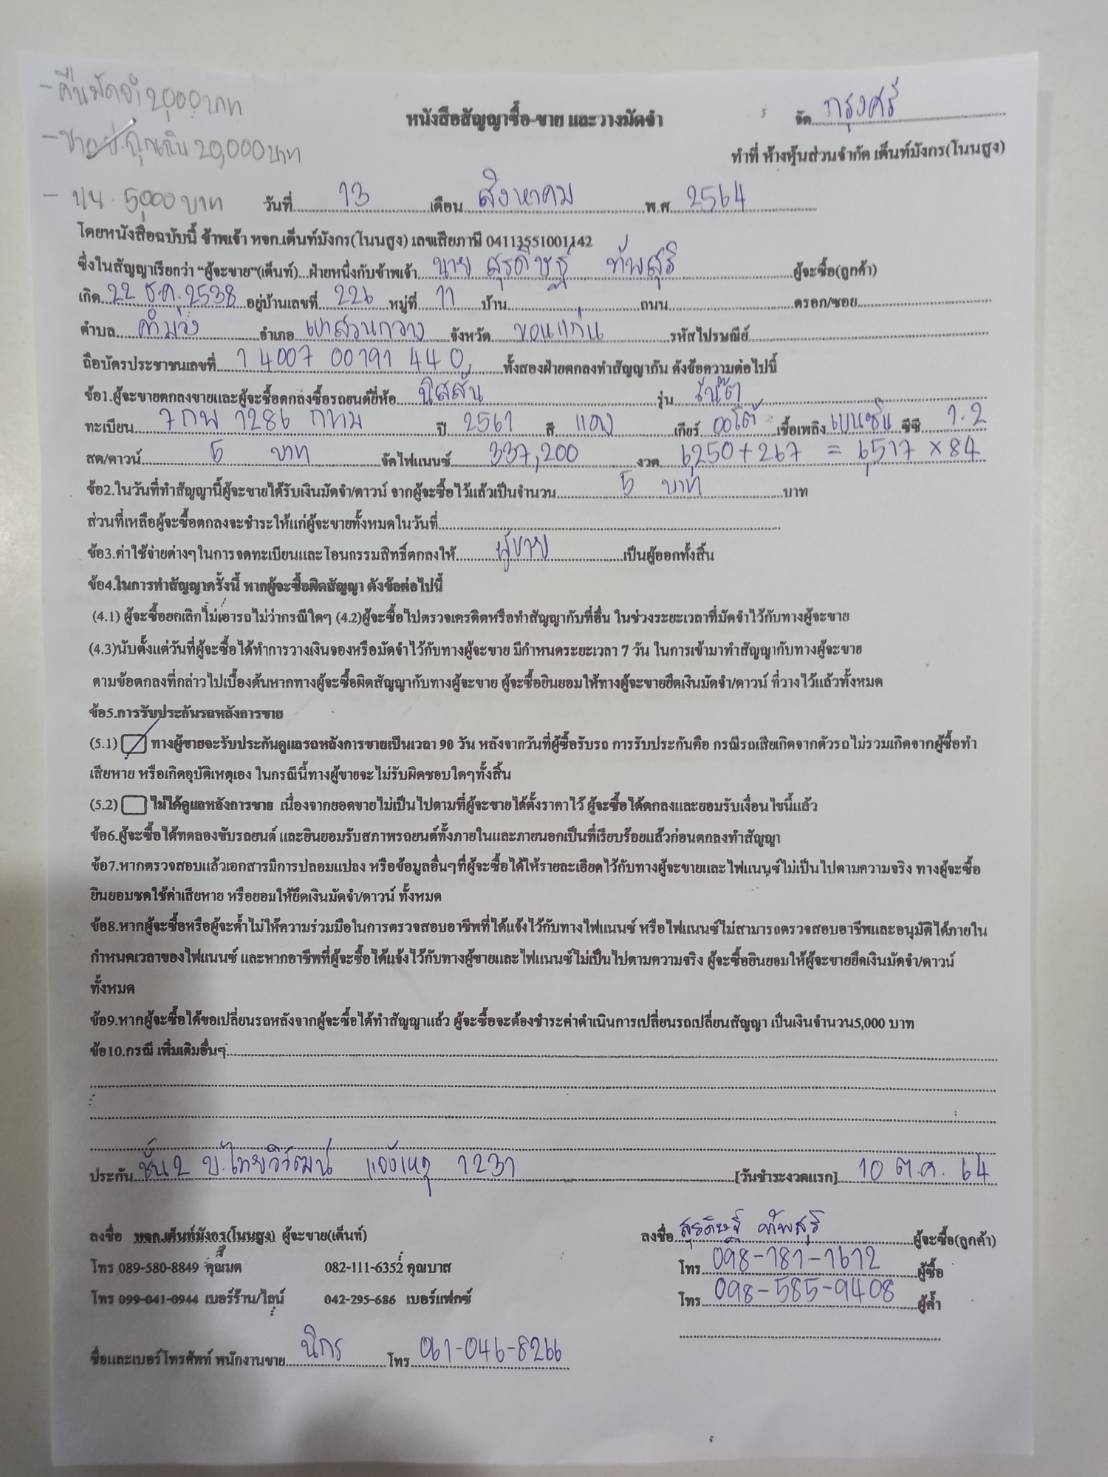 - คืนมัดจำ 2,000 บาท
- ฉุกเฉิน 20,000 บาท
- 5,000 บาท
หนังสือสัญญาซื้อ-ขาย และวางมัดจำ
จัด กรุงศรี
ทำที่ ห้างหุ้นส่วนจำกัด เต็นท์มังกร(โนนสูง)
วันที่ 13 เดือน สิงหาคม พ.ศ. 2564
โดยหนังสือฉบับนี้ ข้าพเจ้า หจก.เต็นท์มังกร(โนนสูง) เลขเสียภาษี 04113551001142
ซึ่งในสัญญาเรียกว่า "ผู้จะขาย"(เต็นท์)...ฝ่ายหนึ่งกับข้าพเจ้า นาย สุรดิษฐ์ ทัพสุริ ผู้จะซื้อ(ลูกค้า)
เกิด 22 ธ.ค. 2538 อยู่บ้านเลขที่ 226 หมู่ที่ 11 บ้าน ถนน ตรอก/ซอย
ตำบล คำม่วง อำเภอ เขาสวนกวาง จังหวัด ขอนแก่น รหัสไปรษณีย์
ถือบัตรประชาชนเลขที่ 1 4007 00191 44 0 ทั้งสองฝ่ายตกลงทำสัญญากัน ดังข้อความต่อไปนี้
ข้อ1.ผู้จะขายตกลงขายและผู้จะซื้อตกลงซื้อรถยนต์ยี่ห้อ นิสสัน รุ่น
ทะเบียน 7 กพ 1286 กทม ปี 2561 สี แดง เกียร์ ออโต้ เชื้อเพลิง เบนซิน ซีซี 1.2
สด/ดาวน์ 5 บาท จัดไฟแนนซ์ 337,200 งวด 6,250+267 = 6,517 × 84
ข้อ2.ในวันที่ทำสัญญานี้ผู้จะขายได้รับเงินมัดจำ/ดาวน์ จากผู้จะซื้อไว้แล้วเป็นจำนวน 5 บาท บาท
ส่วนที่เหลือผู้จะซื้อตกลงจะชำระให้แก่ผู้จะขายทั้งหมดในวันที่
ข้อ3.ค่าใช้จ่ายต่างๆในการจดทะเบียนและโอนกรรมสิทธิ์ตกลงให้ ผู้ขาย เป็นผู้ออกทั้งสิ้น
ข้อ4.ในการทำสัญญาครั้งนี้ หากผู้จะซื้อผิดสัญญา ดังข้อต่อไปนี้
(4.1) ผู้จะซื้อยกเลิกไม่เอารถไม่ว่ากรณีใดๆ (4.2)ผู้จะซื้อไปตรวจเครดิตหรือทำสัญญากับที่อื่น ในช่วงระยะเวลาที่มัดจำไว้กับทางผู้จะขาย
(4.3)นับตั้งแต่วันที่ผู้จะซื้อได้ทำการวางเงินจองหรือมัดจำไว้กับทางผู้จะขาย มีกำหนดระยะเวลา 7 วัน ในการเข้ามาทำสัญญากับทางผู้จะขาย
ตามข้อตกลงที่กล่าวไปเบื้องต้นหากทางผู้จะซื้อผิดสัญญากับทางผู้จะขาย ผู้จะซื้อยินยอมให้ทางผู้จะขายยึดเงินมัดจำ/ดาวน์ ที่วางไว้แล้วทั้งหมด
ข้อ5.การรับประกันรถหลังการขาย
(5.1) ทางผู้ขายจะรับประกันดูแลรถหลังการขายเป็นเวลา 90 วัน หลังจากวันที่ผู้ซื้อรับรถ การรับประกันคือ กรณีรถเสียเกิดจากตัวรถไม่รวมเกิดจากผู้ซื้อทำ
เสียหาย หรือเกิดอุบัติเหตุเอง ในกรณีนี้ทางผู้ขายจะไม่รับผิดชอบใดๆทั้งสิ้น
(5.2) ไม่ได้ดูแลหลังการขาย เนื่องจากยอดขายไม่เป็นไปตามที่ผู้จะขายได้ตั้งราคาไว้ ผู้จะซื้อได้ตกลงและยอมรับเงื่อนไขนี้แล้ว
ข้อ6.ผู้จะซื้อได้ทดลองขับรถยนต์ และยินยอมรับสภาพรถยนต์ทั้งภายในและภายนอกเป็นที่เรียบร้อยแล้วก่อนตกลงทำสัญญา
ข้อ7.หากตรวจสอบแล้วเอกสารมีการปลอมแปลง หรือข้อมูลอื่นๆที่ผู้จะซื้อได้ให้รายละเอียดไว้กับทางผู้จะขายและไฟแนนซ์ไม่เป็นไปตามความจริง ทางผู้จะซื้อ
ยินยอมชดใช้ค่าเสียหาย หรือยอมให้ยึดเงินมัดจำ/ดาวน์ ทั้งหมด
ข้อ8.หากผู้จะซื้อหรือผู้จะค้ำไม่ให้ความร่วมมือในการตรวจสอบอาชีพที่ได้แจ้งไว้กับทางไฟแนนซ์ หรือไฟแนนซ์ไม่สามารถตรวจสอบอาชีพและอนุมัติได้ภายใน
กำหนดเวลาของไฟแนนซ์ และหากอาชีพที่ผู้จะซื้อได้แจ้งไว้กับทางผู้ขายและไฟแนนซ์ไม่เป็นไปตามความจริง ผู้จะซื้อยินยอมให้ผู้จะขายยึดเงินมัดจำ/ดาวน์
ทั้งหมด
ข้อ9.หากผู้จะซื้อได้ขอเปลี่ยนรถหลังจากผู้จะซื้อได้ทำสัญญาแล้ว ผู้จะซื้อจะต้องชำระค่าดำเนินการเปลี่ยนรถเปลี่ยนสัญญา เป็นเงินจำนวน5,000 บาท
ข้อ10.กรณี เพิ่มเติมอื่นๆ
ประกัน ชั้น2 บ.ไทยวิวัฒน์ แจ้งเหตุ 1231 [วันชำระงวดแรก] 10 ต.ค. 64
ลงชื่อ หจก.เต็นท์มังกร(โนนสูง) ผู้จะขาย(เต็นท์) ลงชื่อ สุรดิษฐ์ ทัพสุริ ผู้จะซื้อ(ลูกค้า)
โทร 089-580-8849 คุณมด 082-111-6352 คุณบาส โทร 098-781-1672 ผู้ซื้อ
โทร 099-041-0944 เบอร์ร้าน/ไลน์ 042-295-686 เบอร์แฟกซ์ โทร 098-585-9408 ผู้ค้ำ
ชื่อและเบอร์โทรศัพท์ พนักงานขาย นิกร โทร 061-046-8266